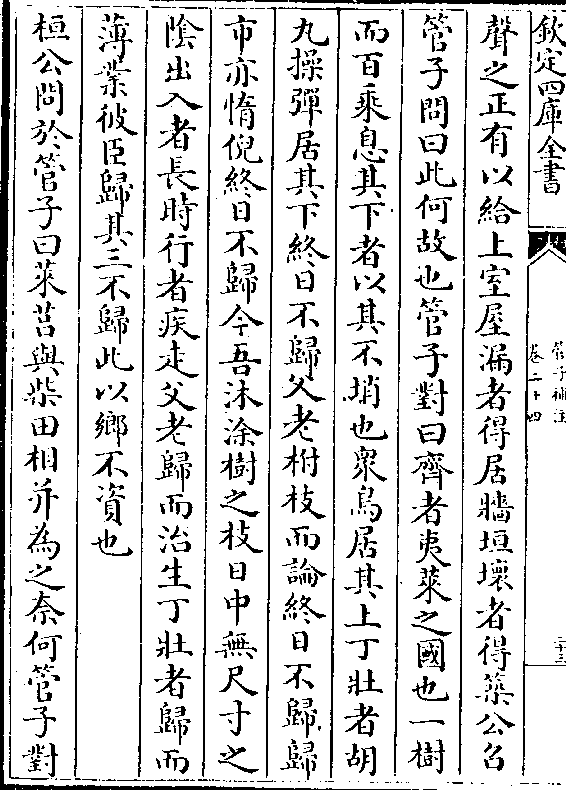 欽定四庫全書
管子補注
卷二十四
二十三
聲之正有以給上室屋漏者得居牆垣壞者得築公召
管子問曰此何故也管子對曰齊者夷萊之國也一樹
而百乘息其下者以其不捎也衆鳥居其上丁壯者胡
九操彈居其下終日不歸父老柎枝而論終日不歸歸
市亦惰倪終日不歸今吾沐涂樹之枝日中無尺寸之
隂出入者長時行者疾走父老歸而治生丁壯者歸而
薄業彼臣歸其三不歸此以鄉不資也
桓公問於管子曰萊莒與柴田相并為之奈何管子對